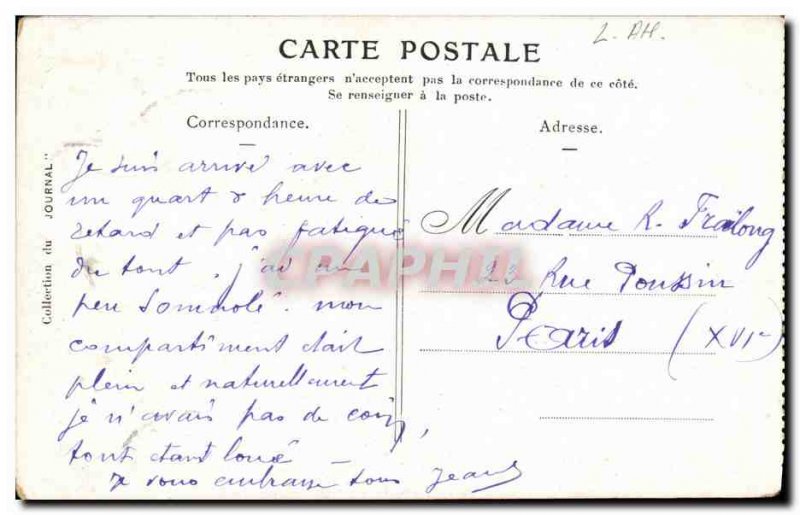 L. AH.
CARTE POSTALE
Tous les pays étrangers n'acceptent pas la correspondance de ce côté.
Se renseigner à la poste.
Collection du JOURNAL"
Correspondance.
Je suis arrivé avec
un quart d heure de
retard et pas fatigué
du tout. j'ai une
peu somnolé. mon
compartiment était
plein et naturellement
je n'avais pas de coin,
tout étant loué
Je vous embrasse tous Jean
Adresse.
Madame R.
23 Rue Poussin
Paris (XVIe)
CPAPHIL